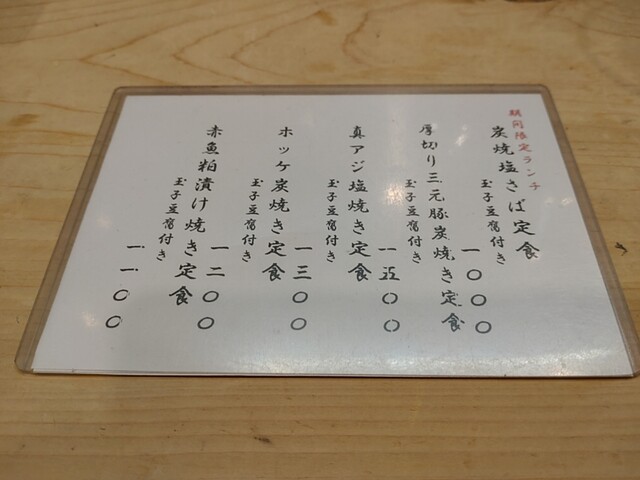 期間限定ランチ
炭焼塩さば定食
玉子豆腐付き
一〇〇〇
厚切り三元豚炭焼き定食
玉子豆腐付き
一五〇〇
真アジ塩焼き定食
玉子豆腐付き
一三〇〇
ホッケ炭焼き定食
玉子豆腐付き
一二〇〇
赤魚粕漬け焼き定食
玉子豆腐付き
一一〇〇